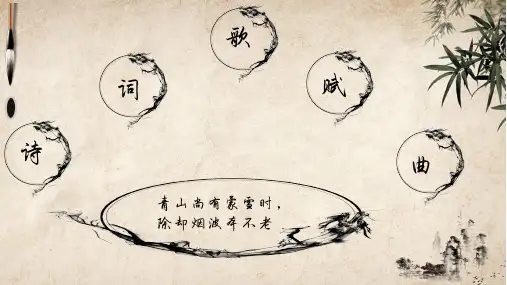 诗
词
歌
赋
曲
青山尚有蒙雪时，
除却烟波本不老